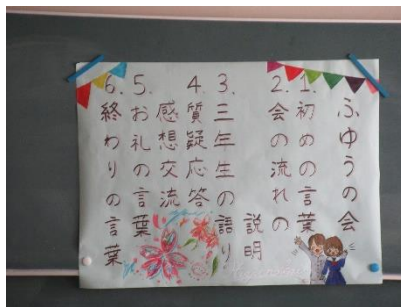 ふゆうの会
1.初めの言葉
2.会の流れの
説明
3.三年生の語り
4.質疑応答
感想交流
5.お礼の言葉
6.終わりの言葉